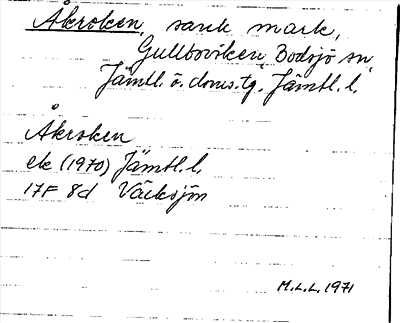 Åkroken, sank mark,
Gullboviken, Bodsjö sn,
Jämtl. ö. doms.tg. Jämtl. l.
Åkroken
ek (1970) Jämtl. l.
17F 8d Väcksjön
M.L.L. 1971